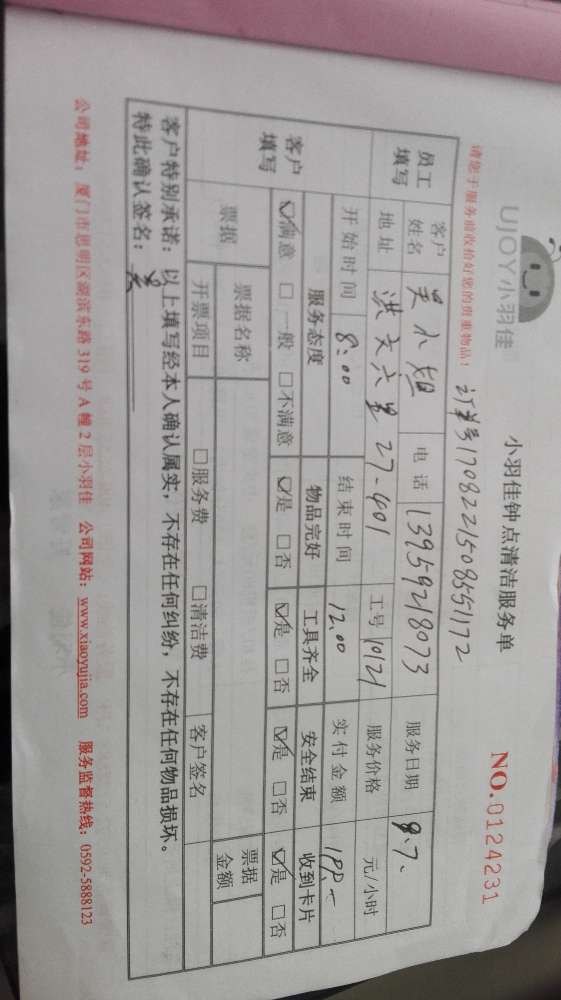 UJOY小羽佳
小羽佳钟点清洁服务单
NO.0124231
请您于服务前收拾好您的贵重物品!
订单号1708221508551172
员工填写
客户姓名 吴小姐 电话 13959218073 服务日期 9.7.
地址 洪文六里27-401 工号 10121 服务价格 元/小时
客户填写
开始时间 8:00 结束时间 12.00 实付金额
服务态度 物品完好 工具齐全 安全结束 收到卡片
☑满意 □一般 □不满意 ☑是 □否 ☑是 □否 ☑是 □否 ☑是 □否
票据 票据名称 票据金额
开票项目 □服务费 □清洁费 客户签名
客户特别承诺:以上填写经本人确认属实,不存在任何纠纷,不存在任何物品损坏。
特此确认签名:吴
公司地址:厦门市思明区湖滨东路319号A幢2层小羽佳 公司网站:www.xiaoyujia.com 服务监督热线:0592-5888123